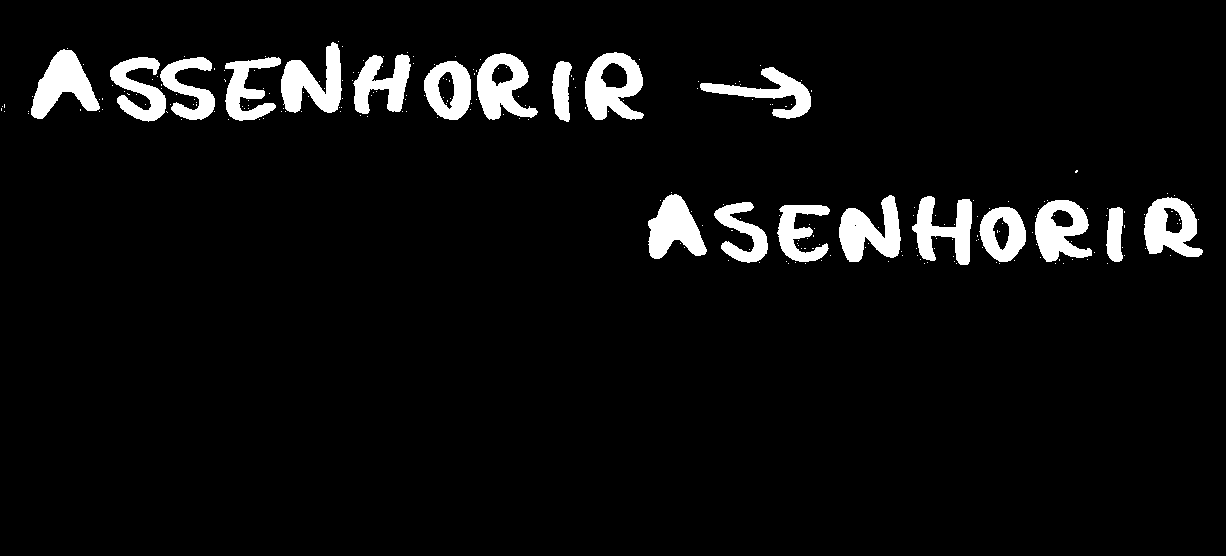 ASSENHORIR →
ASENHORIR